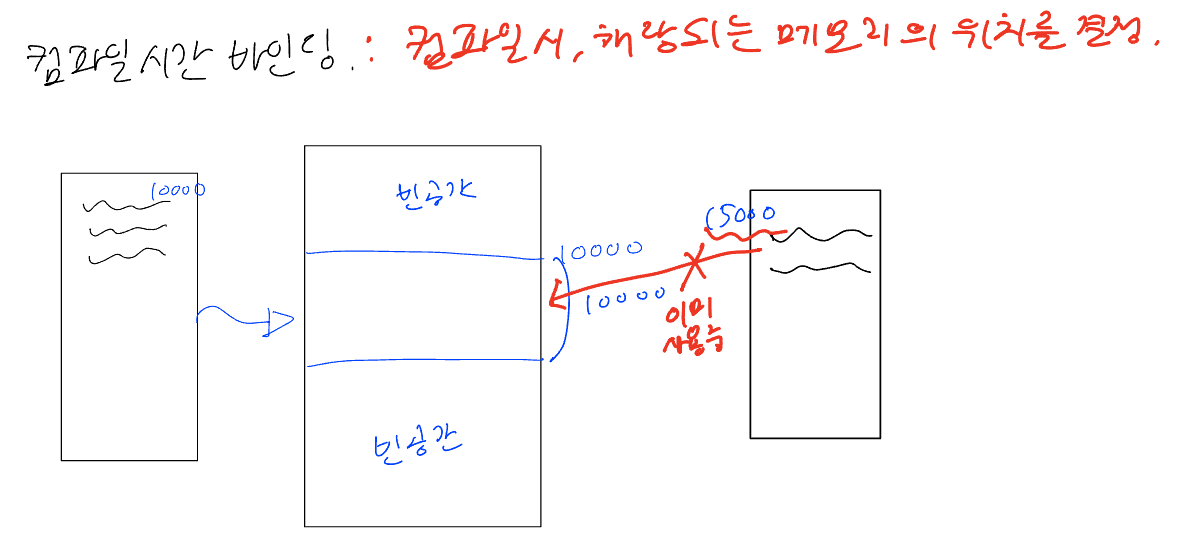 컴파일시간 바인딩 : 컴파일시, 해당되는 메모리의 위치를 결정.
10000
빈공간
15000
10000
10000
이미
사용중
빈공간